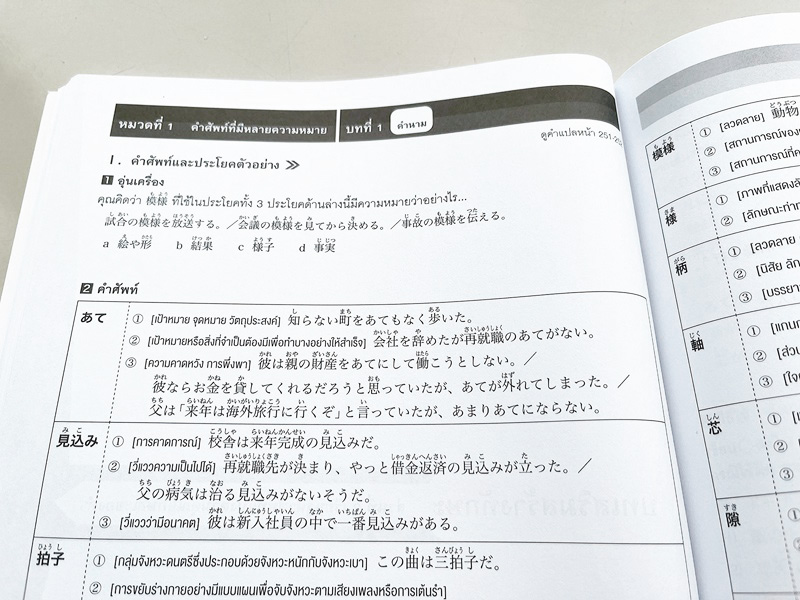 หมวดที่ 1 คำศัพท์ที่มีหลายความหมาย บทที่ 1 คำนาม
ดูคำแปลหน้า 251-25
I. คำศัพท์และประโยคตัวอย่าง
1 อุ่นเครื่อง
คุณคิดว่า 模様 ที่ใช้ในประโยคทั้ง 3 ประโยคด้านล่างนี้มีความหมายว่าอย่างไร...
試合の模様を放送する。／会議の模様を見てから決める。／事故の模様を伝える。
a 絵や形 b 結果 c 様子 d 事実
2 คำศัพท์
あて ① [เป้าหมาย จุดหมาย วัตถุประสงค์] 知らない町をあてもなく歩いた。
② [เป้าหมายหรือสิ่งที่จำเป็นต้องมีเพื่อทำบางอย่างให้สำเร็จ] 会社を辞めたが再就職のあてがない。
③ [ความคาดหวัง การพึ่งพา] 彼は親の財産をあてにして働こうとしない。／
彼ならお金を貸してくれるだろうと思っていたが、あてが外れてしまった。／
父は「来年は海外旅行に行くぞ」と言っていたが、あまりあてにならない。
見込み ① [การคาดการณ์] 校舎は来年完成の見込みだ。
② [วี่แววความเป็นไปได้] 再就職先が決まり、やっと借金返済の見込みが立った。／
父の病気は治る見込みがないそうだ。
③ [วี่แววว่ามีอนาคต] 彼は新入社員の中で一番見込みがある。
拍子 ① [กลุ่มจังหวะดนตรีซึ่งประกอบด้วยจังหวะหนักกับจังหวะเบา] この曲は三拍子だ。
② [การขยับร่างกายอย่างมีแบบแผนเพื่อจับจังหวะตามเสียงเพลงหรือการเต้นรำ]
模様 ① [ลวดลาย] 動物
② [สถานการณ์ของ
③ [สถานการณ์ที่ค
様 ① [ภาพที่แสดงลั
② [ลักษณะท่าท
柄 ① [ลวดลาย
② [นิสัย ลัก
③ [บรรยา
軸 ① [แกนก
② [ส่วน
③ [ใจ
芯 ①
②
隙 ①
②